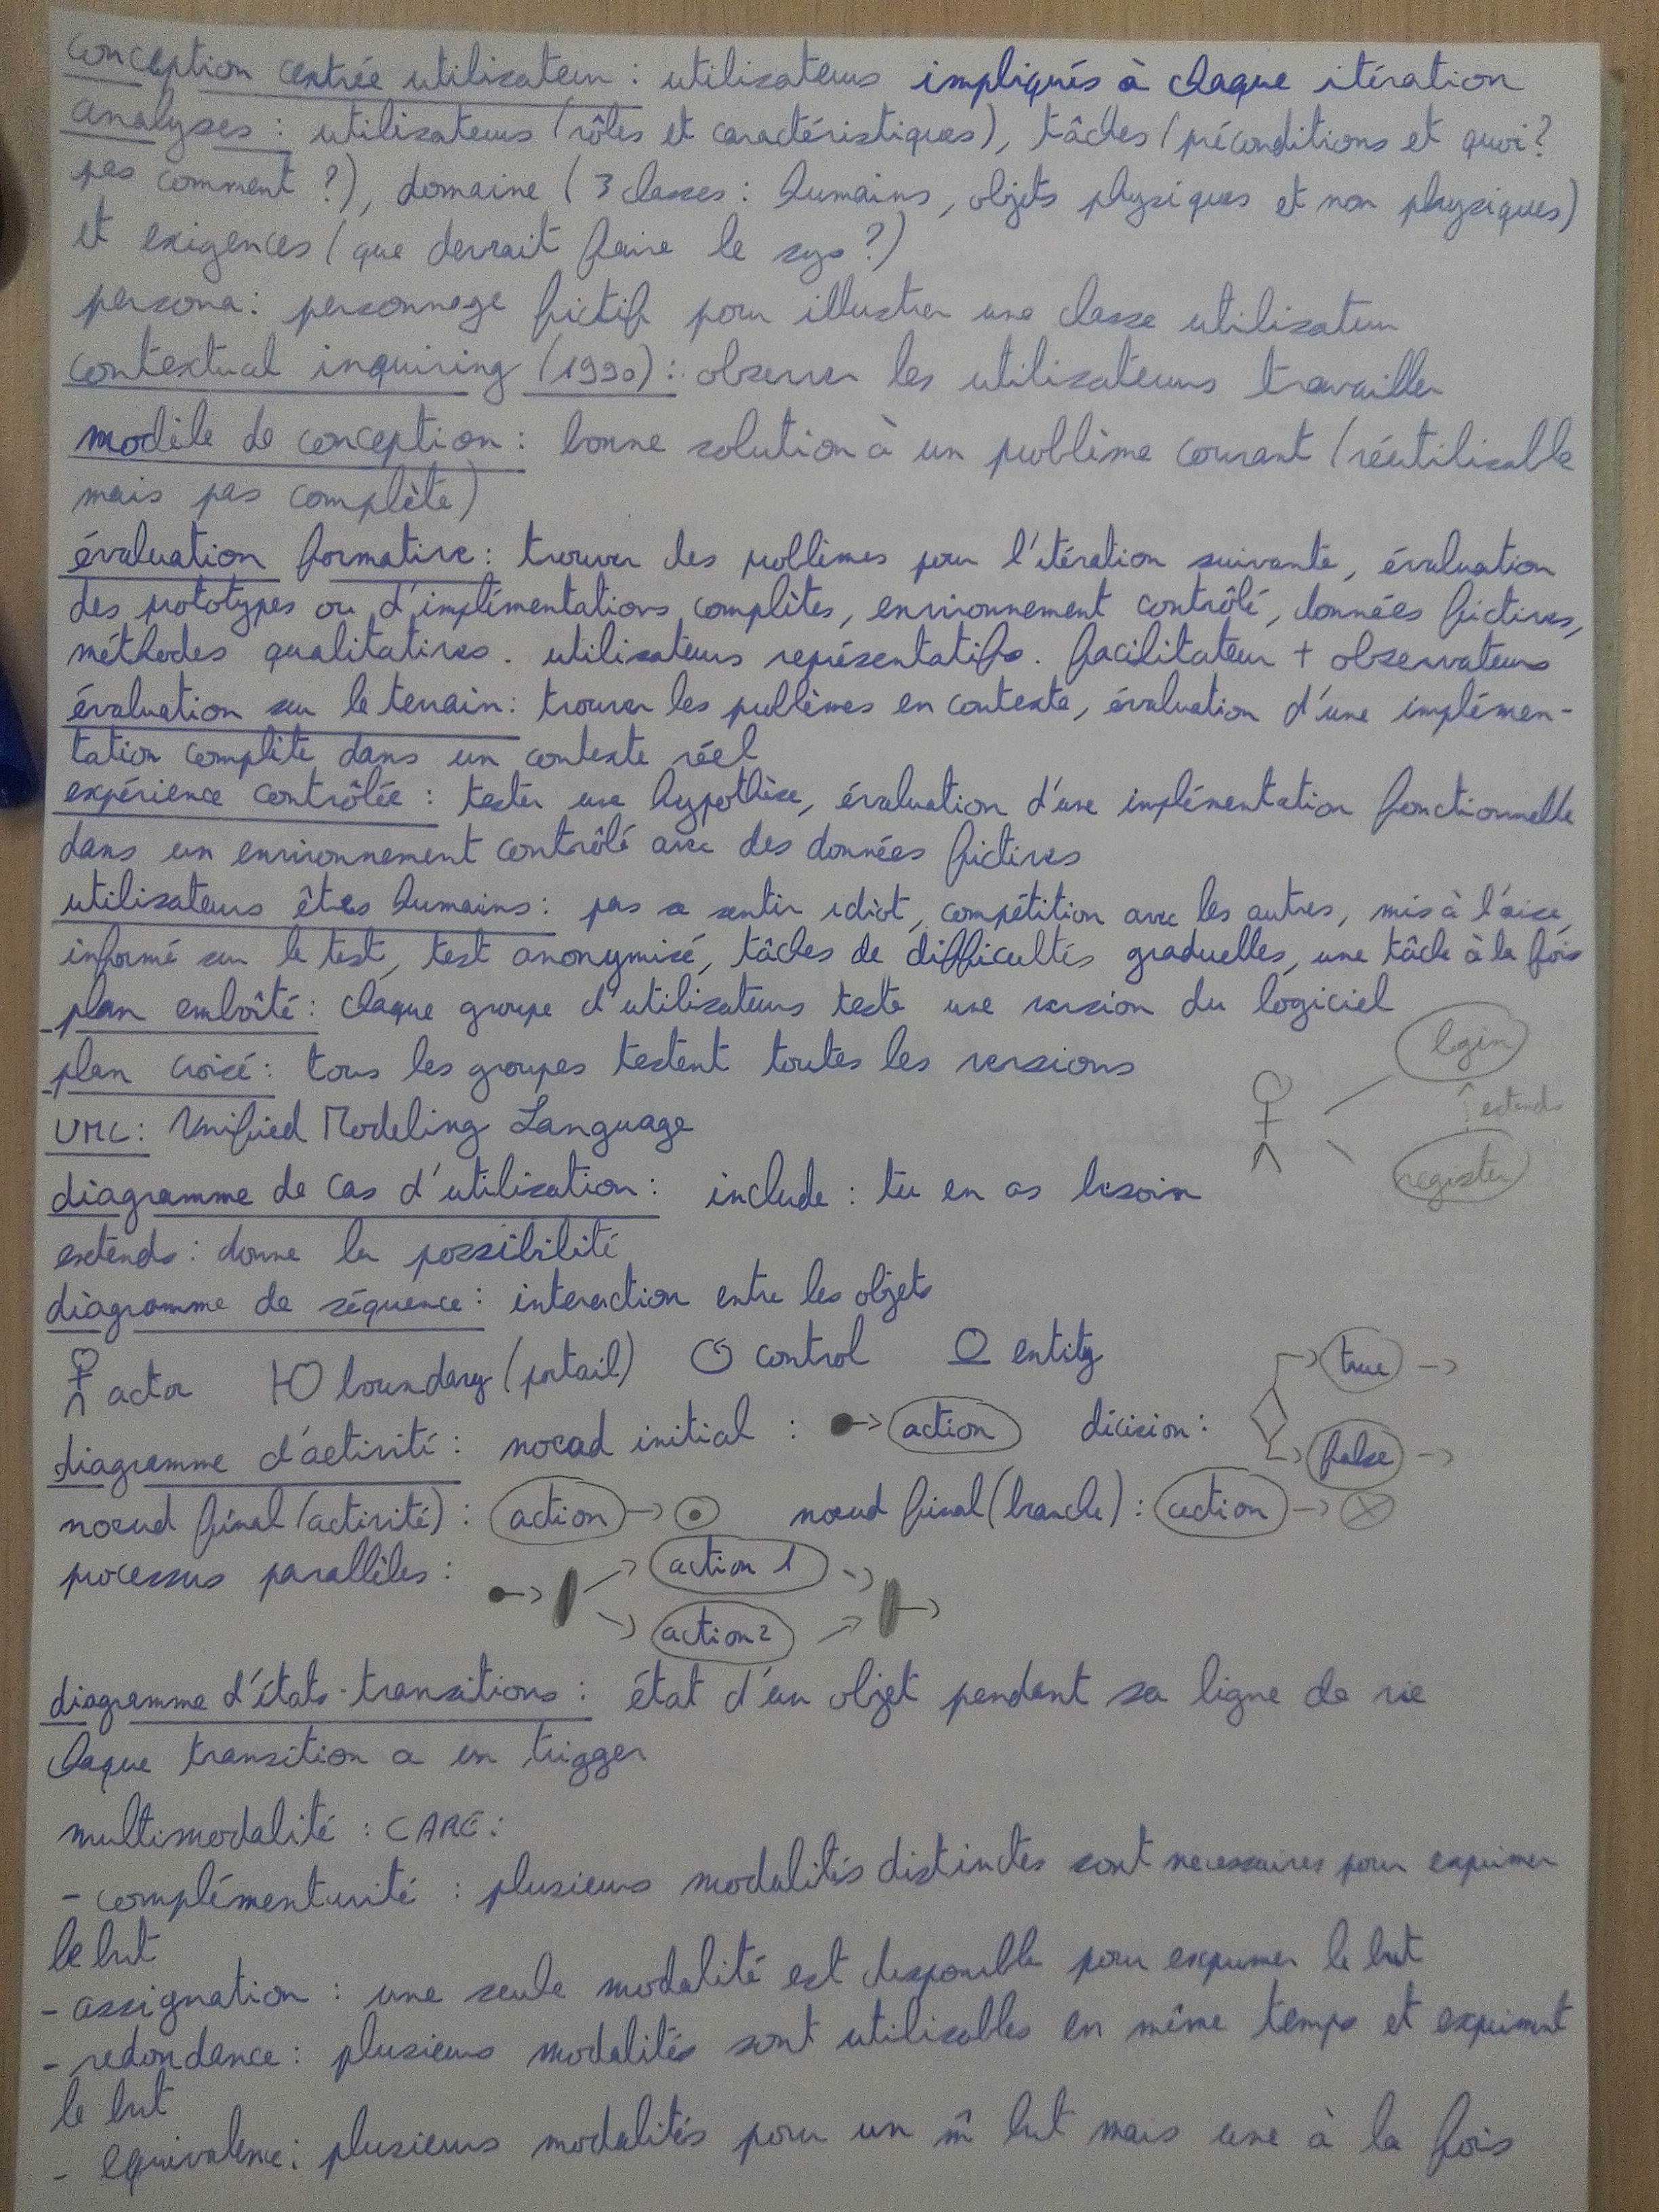 conception centrée utilisateur : utilisateurs impliqués à chaque itération
analyses : utilisateurs (rôles et caractéristiques), tâches (préconditions et quoi ?
pas comment ?), domaine (3 classes : humains, objets physiques et non physiques)
et exigences (que devrait faire le sys ?)
persona : personnage fictif pour illustrer une classe utilisateur
contextual inquiring (1990) : observer les utilisateurs travailler
modèle de conception : bonne solution à un problème courant (réutilisable
mais pas complète)
évaluation formative : trouver des problèmes pour l'itération suivante, évaluation
des prototypes ou d'implémentations complètes, environnement contrôlé, données fictives,
méthodes qualitatives. utilisateurs représentatifs. facilitateur + observateurs
évaluation sur le terrain : trouver les problèmes en contexte, évaluation d'une implémen-
tation complète dans un contexte réel
expérience contrôlée : tester une hypothèse, évaluation d'une implémentation fonctionnelle
dans un environnement contrôlé avec des données fictives
utilisateurs êtres humains : pas se sentir idiot, compétition avec les autres, mis à l'aise,
informé sur le test, test anonymisé, tâches de difficultés graduelles, une tâche à la fois
- plan emboîté : chaque groupe d'utilisateurs teste une version du logiciel
login
- plan croisé : tous les groupes testent toutes les versions
extends
UML : Unified Modeling Language
register
diagramme de cas d'utilisation : include : tu en as besoin
extends : donne la possibilité
diagramme de séquence : interaction entre les objets
actor boundary (portail) control entity
true
diagramme d'activité : noeud initial : action décision :
false
noeud final (activité) : action noeud final (branche) : action
processus parallèles : action 1
action 2
diagramme d'états-transitions : état d'un objet pendant sa ligne de vie
chaque transition a un trigger
multimodalité : CARE :
- complémentarité : plusieurs modalités distinctes sont necessaires pour exprimer
le but
- assignation : une seule modalité est disponible pour exprimer le but
- redondance : plusieurs modalités sont utilisables en même temps et expriment
le but
- equivalence : plusieurs modalités pour un m̂ but mais une à la fois